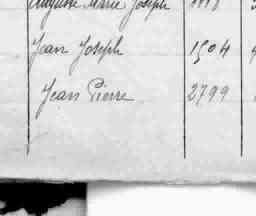 Auguste Marie Joseph
Jean Joseph 1504
Jean Pierre 2799